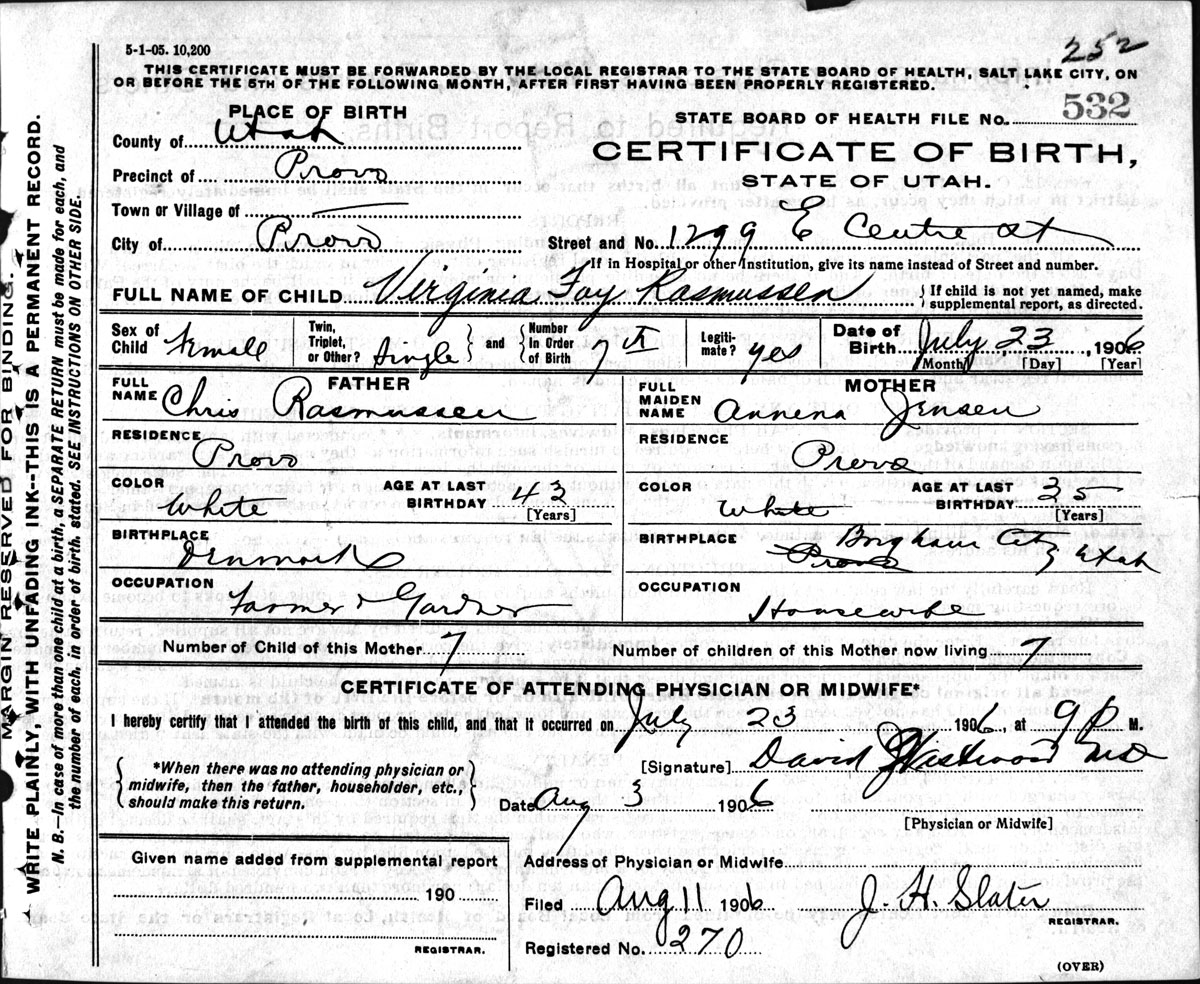 5-1-05. 10,200
252
THIS CERTIFICATE MUST BE FORWARDED BY THE LOCAL REGISTRAR TO THE STATE BOARD OF HEALTH, SALT LAKE CITY, ON
OR BEFORE THE 5TH OF THE FOLLOWING MONTH, AFTER FIRST HAVING BEEN PROPERLY REGISTERED.
PLACE OF BIRTH
STATE BOARD OF HEALTH FILE No. 532
County of Utah
CERTIFICATE OF BIRTH,
STATE OF UTAH.
Precinct of Provo
Town or Village of
City of Provo Street and No. 1299 E Centre St
If in Hospital or other Institution, give its name instead of Street and number.
FULL NAME OF CHILD Virginia Fay Rasmussen { If child is not yet named, make
supplemental report, as directed.
Sex of Child Female Twin, Triplet, or Other? Single } and { Number in Order of Birth 7th Legiti- mate? yes Date of Birth July 23, 1906
(Month) [Day] [Year]
FATHER
FULL NAME Chris Rasmussen
RESIDENCE Provo
COLOR White AGE AT LAST BIRTHDAY 43
[Years]
BIRTHPLACE Denmark
OCCUPATION Farmer & Gardner
MOTHER
FULL MAIDEN NAME Annena Jensen
RESIDENCE Provo
COLOR White AGE AT LAST BIRTHDAY 35
[Years]
BIRTHPLACE Provo Brigham City Utah
OCCUPATION Housewife
Number of Child of this Mother 7 Number of children of this Mother now living 7
CERTIFICATE OF ATTENDING PHYSICIAN OR MIDWIFE*
I hereby certify that I attended the birth of this child, and that it occurred on July 23 1906, at 9 P M.
{ *When there was no attending physician or
midwife, then the father, householder, etc.,
should make this return. }
[Signature] David Westwood MD
Date Aug 3 1906
[Physician or Midwife]
Given name added from supplemental report
190
REGISTRAR.
Address of Physician or Midwife
Filed Aug 11 1906 J. H. Slater
REGISTRAR.
Registered No. 270
(OVER)
MARGIN RESERVED FOR BINDING.
WRITE PLAINLY, WITH UNFADING INK--THIS IS A PERMANENT RECORD.
N. B.—In case of more than one child at a birth, a SEPARATE RETURN must be made for each, and
the number of each, in order of birth, stated. SEE INSTRUCTIONS ON OTHER SIDE.